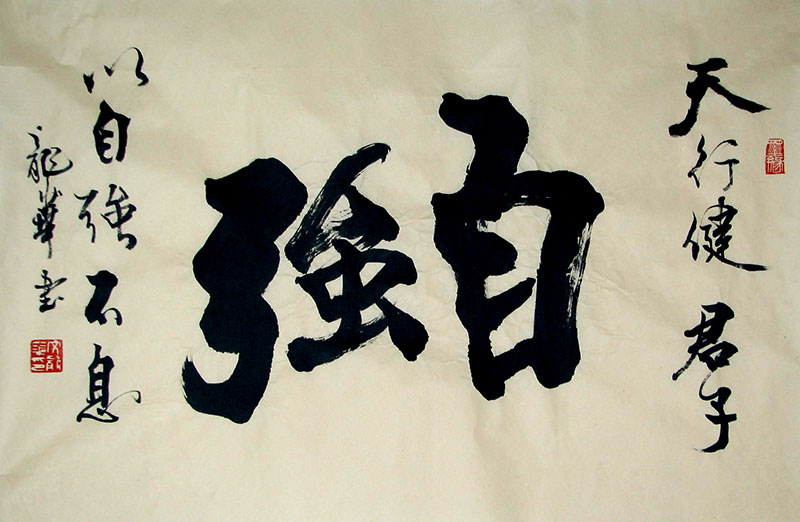 天行健君子
自強
以自強不息
龍華書